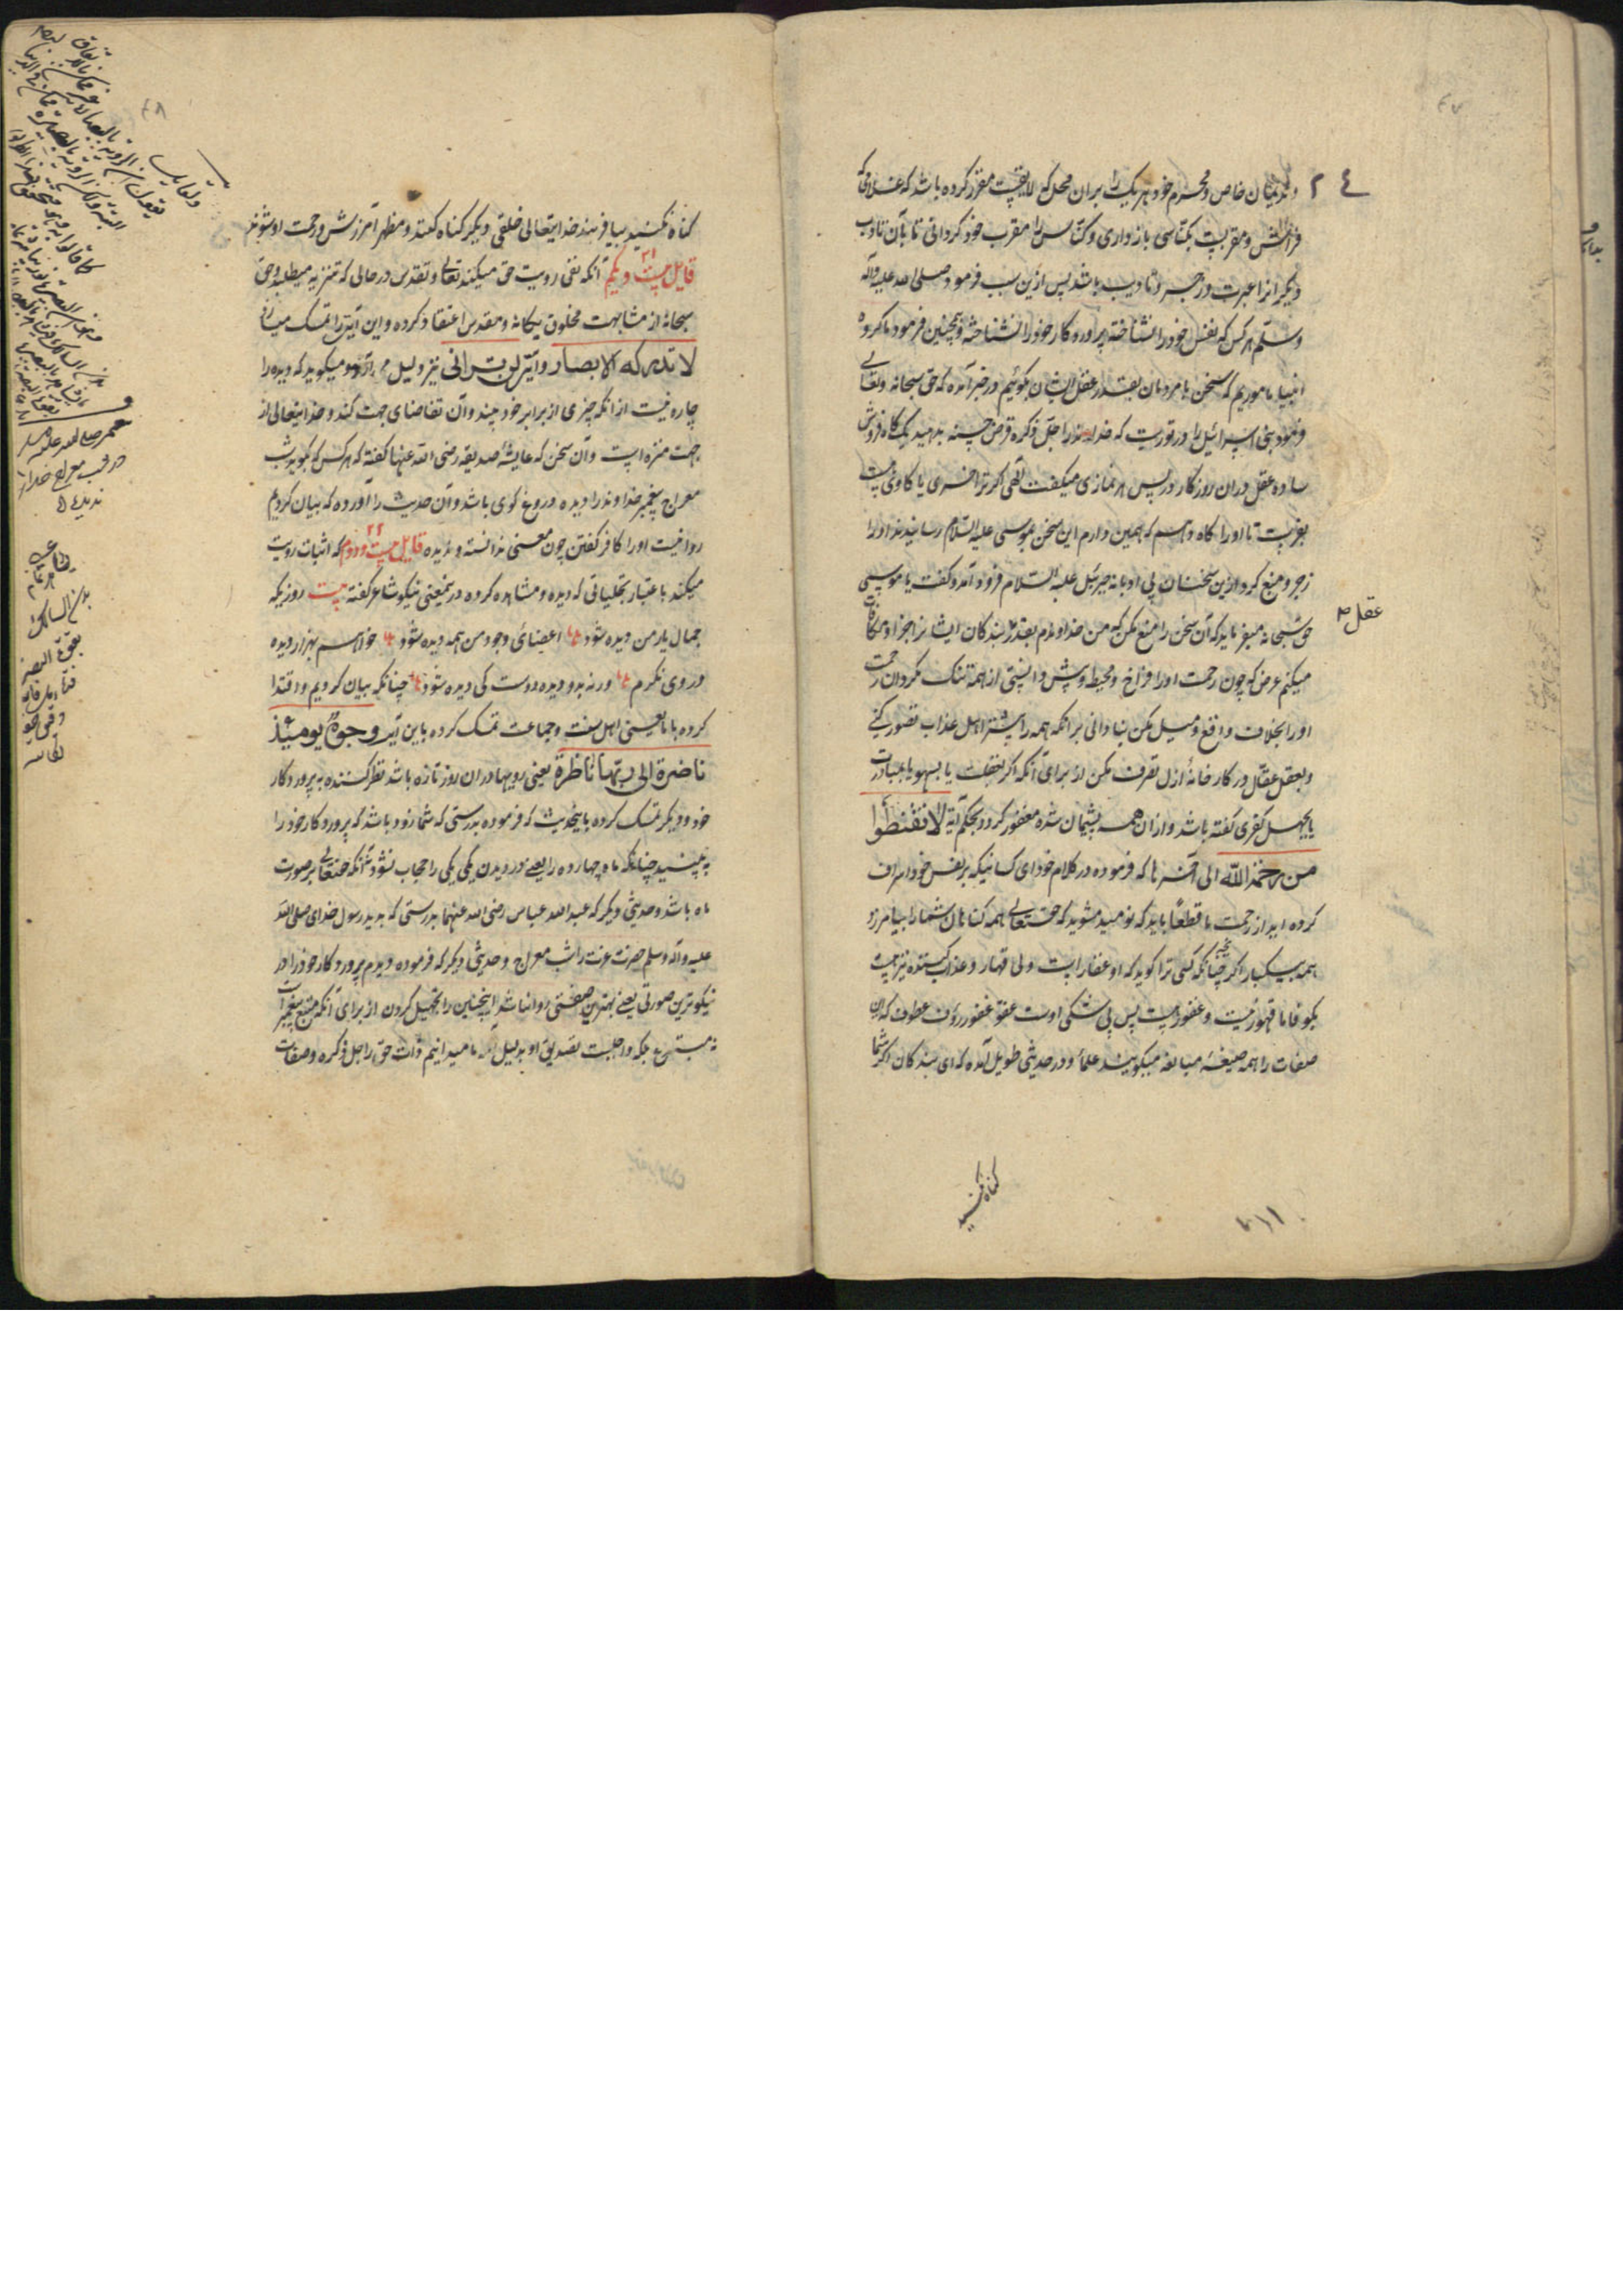 وندیمان خاص و محرم خود هر یک را بران محل که لایقیست مقرر کرده باشد که غلامی که
فراش و مقربست بکناسی بازداری و کناس را مقرب خود کردانی تا بآن تادیب
دیکرانرا عبرت و زجر و تادیب باشد پس ازین سبب فرمود صلی الله علیه وآله
وسلم هر کس که نفس خود را نشناخته پروردکار خود را نشناخته و همچنین فرمود ما کروه
انبیا ماموریم که سخن با مردمان بقدر عقل ایشان بکوئیم در خبر آمده که حق سبحانه وتعالی
فرمود بنی اسرائیل را در توریت که خداوند را جل ذکره قرض حسنه بدهید یک کاه فروش
ساده عقل دران روزکار در پس هر نمازی میکفت الهی اکر ترا خری یا کاوی هست
بفرست تا او را کاه دهم که همین دارم این سخن بموسی علیه السلام رسانیدند او را
زجر و منع کرد ازین سخنان بی ادبانه جبرئیل علیه السلام فرود آمد و کفت یا موسی
حق سبحانه میفرماید که آن سخن را منع مکن که من خداوندم بقدر بندکان ایشانرا جزا و مکافات
عقل
میکنم غرض که چون رحمت او را فراخ و محیط و پیش دانستی از همه تنک مکردان رحمت
او را بخلاف واقع و میل مکن بنادانی برآنکه همه را بیشتر اهل عذاب تصور کنی
وبعقل عقال در کارخانهٔ ازل تصرف مکن از برای آنکه اکر بغفلت یا بسهو یا بمبادرت
یا بجهل کفری کفته باشد و ازان همه پشیمان شده مغفور کردد بحکم آیة لا تقنطوا
من رحمة الله الی آخرها که فرموده در کلام خود ای کسانیکه بر نفس خود اسراف
کرده اید از رحمت ما قطعاً باید که نومید مشوید که حقتعالی همه کناهان شما را بیامرزد
همه بیکبار اکر چنانکه کسی ترا کوید که او غفار است ولی قهار و عذاب کننده نیز هست
بکو فاما قهور نیست و غفور هست پس بی شکی اوست عفو غفور رؤف عطوف که این
صفات را همه صیغهٔ مبالغه میکویند علما و در حدیثی طویل آمده که ای بندکان اکر شما
کناه نکنید
کناه نکنید بیافریند خدایتعالی خلقی دیکر کناه کنند و مظهر آمرزش و رحمت او شوند
قایل بیست ویکم ۲۱ آنکه نفی رویت حق میکند تعالی وتقدس در حالی که تنزیه میطلبد وحق
سبحانه از مشابهت مخلوق بیکانه و مقدس اعتقاد کرده و این آیترا تمسک میسازد
لا تدرکه الابصار و آیت لن ترانی نیز دلیل می آرد و میکوید که دیده را
چاره نیست از آنکه چیزی از برابر خود بیند و آن تقاضای جهت کند و خدایتعالی از
جهت منزه است و آن سخن که عایشهٔ صدیقه رضی الله عنها کفته که هر کس که کوید شب
معراج پیغمبر خداوند را دیده دروغ کوی باشد و آن حدیث را آورده که بیان کردم
روا نیست او را کافر کفتن چون معنی ندانسته و ندیده قایل بیست ودوم ۲۲ که اثبات رویت
میکند باعتبار تجلیاتی که دیده و مشاهده کرده در نمعنی نیکو شاعر کفته بیت روزیکه
جمال یار من دیده شود اعضای وجود من همه دیده شود خواهم بهزار دیده
در وی نکرم ورنه بدو دیده دوست کی دیده شود چنانکه بیان کردیم و اقتدا
کرده با ما یعنی اهل سنت و جماعت تمسک کرده باین آیت وجوهٌ یومئذ
ناضرة الی ربها ناظرة یعنی رویها دران روز تازه باشد نظر کننده به پروردکار
خود و دیکر تمسک کرده باینحدیث که فرموده بدرستی که شما زود باشد که پروردکار خود را
به بینید چنانکه ماه چهارده را یعنی در دیدن یکی یکی را حجاب نشود نه آنکه حقتعالی بر صورت
ماه باشد و حدیثی دیکر که عبد الله عباس رضی الله عنهما بدرستی که بدید رسول خدای صلی الله
علیه وآله وسلم حضرت عزت را شب معراج و حدیثی دیکر که فرموده دیدم پروردکار خود را در
نیکوترین صورتی یعنی بهترین صفتی روا نباشد اینچنین را تجهیل کردن از برای آنکه متبع پیغمبر است
نه مبتدع بلکه واجبست تصدیق او بدلیل آنکه ما میدانیم ذات حق را جل ذکره وصفات
محمد صلی الله علیه وسلم
در شب معراج خدا را
ندید